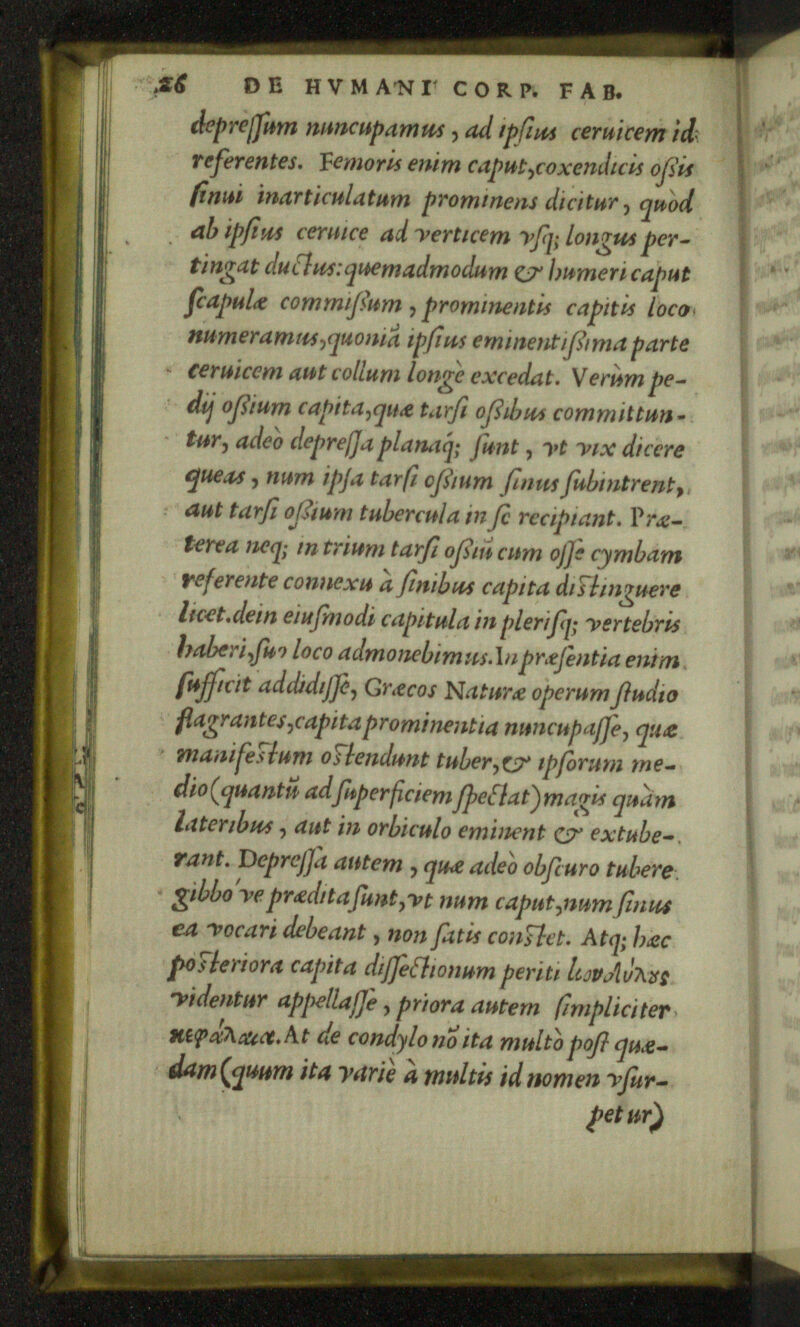 26 DE HVMANI CORP. FAB.
depreſſum nuncupamus, ad ipſius ceruicem id
referentes. Femoris enim caput, coxendicis oßis
ſinui inarticulatum prominens dicitur, quòd
ab ipſius ceruice ad verticem vſq; longus per-
tingat ductus: quemadmodum & humeri caput
ſcapulæ commißum, prominentis capitis loco
numeramus, quoniã ipſius eminentißima parte
ceruicem aut collum longè excedat. Verùm pe-
dij oßium capita, quæ tarſi oßibus committun-
tur, adeò depreſſa planaq; ſunt, vt vix dicere
queas, num ipſa tarſi oßium ſinus ſubintrent,
aut tarſi oßium tubercula in ſe recipiant. Præ-
terea neq; in trium tarſi oßiũ cum oſſe cymbam
referente connexu à ſinibus capita diſtinguere
licet. dein eiuſmodi capitula in pleriſq; vertebris
haberi, ſuo loco admonebimus. In præſentia enim
ſufficit addidiſſe, Græcos Naturæ operum ſtudio
flagrantes, capita prominentia nuncupaſſe, quæ
manifeſtum oſtendunt tuber, & ipſorum me-
dio (quantũ ad ſuperficiem ſpectat) magis quàm
lateribus, aut in orbiculo eminent & extube-
rant. Depreſſa autem, quæ adeò obſcuro tubere
gibbo ve prædita ſunt, vt num caput, num ſinus
ea vocari debeant, non ſatis conſtet. Atq; hæc
poſteriora capita diſſectionum periti κονδύλȣς
videntur appellaſſe, priora autem ſimpliciter
κεφάλαια. At de condylo nõ ita multò pòſt quæ-
dam (quum ita variè à multis id nomen vſur-
petur)